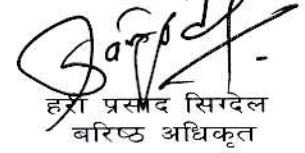 हरि प्रसाद सिग्देल
बरिष्ठ अधिकृत